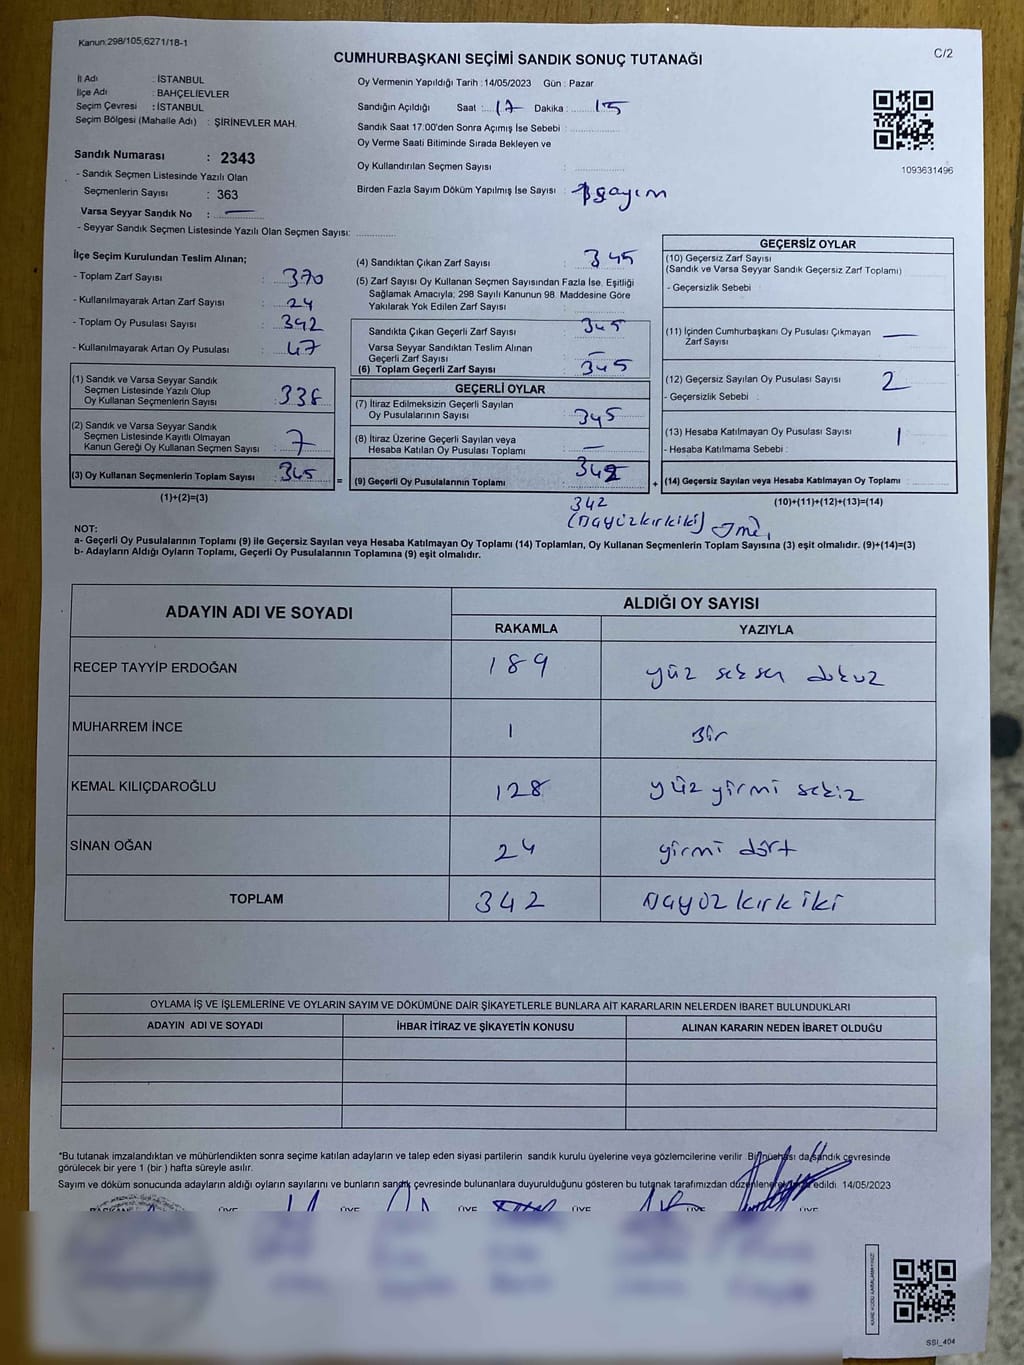 Kanun:298/105,6271/18-1
CUMHURBAŞKANI SEÇİMİ SANDIK SONUÇ TUTANAĞI
C/2
İl Adı : İSTANBUL
İlçe Adı : BAHÇELİEVLER
Seçim Çevresi : İSTANBUL
Seçim Bölgesi (Mahalle Adı) : ŞİRİNEVLER MAH.
Sandık Numarası : 2343
- Sandık Seçmen Listesinde Yazılı Olan
Seçmenlerin Sayısı : 363
Varsa Seyyar Sandık No : —
- Seyyar Sandık Seçmen Listesinde Yazılı Olan Seçmen Sayısı:
Oy Vermenin Yapıldığı Tarih : 14/05/2023 Gün : Pazar
Sandığın Açıldığı Saat : 17 Dakika : 15
Sandık Saat 17:00'den Sonra Açımış İse Sebebi :
Oy Verme Saati Bitiminde Sırada Bekleyen ve
Oy Kullandırılan Seçmen Sayısı :
Birden Fazla Sayım Döküm Yapılmış İse Sayısı : sayım
1093631496
İlçe Seçim Kurulundan Teslim Alınan;
- Toplam Zarf Sayısı : 370
- Kullanılmayarak Artan Zarf Sayısı : 24
- Toplam Oy Pusulası Sayısı : 392
- Kullanılmayarak Artan Oy Pusulası : 47
(1) Sandık ve Varsa Seyyar Sandık
Seçmen Listesinde Yazılı Olup
Oy Kullanan Seçmenlerin Sayısı : 338
(2) Sandık ve Varsa Seyyar Sandık
Seçmen Listesinde Kayıtlı Olmayan
Kanun Gereği Oy Kullanan Seçmen Sayısı : 7
(3) Oy Kullanan Seçmenlerin Toplam Sayısı : 345 =
(1)+(2)=(3)
(4) Sandıktan Çıkan Zarf Sayısı : 345
(5) Zarf Sayısı Oy Kullanan Seçmen Sayısından Fazla İse, Eşitliği
Sağlamak Amacıyla; 298 Sayılı Kanunun 98. Maddesine Göre
Yakılarak Yok Edilen Zarf Sayısı :
Sandıkta Çıkan Geçerli Zarf Sayısı : 345
Varsa Seyyar Sandıktan Teslim Alınan
Geçerli Zarf Sayısı : —
(6) Toplam Geçerli Zarf Sayısı : 345
GEÇERLİ OYLAR
(7) İtiraz Edilmeksizin Geçerli Sayılan
Oy Pusulalarının Sayısı : 345
(8) İtiraz Üzerine Geçerli Sayılan veya
Hesaba Katılan Oy Pusulası Toplamı : —
(9) Geçerli Oy Pusulalarının Toplamı : 342 +
342
GEÇERSİZ OYLAR
(10) Geçersiz Zarf Sayısı
(Sandık ve Varsa Seyyar Sandık Geçersiz Zarf Toplamı)
- Geçersizlik Sebebi :
(11) İçinden Cumhurbaşkanı Oy Pusulası Çıkmayan
Zarf Sayısı : —
(12) Geçersiz Sayılan Oy Pusulası Sayısı : 2
- Geçersizlik Sebebi :
(13) Hesaba Katılmayan Oy Pusulası Sayısı : 1
- Hesaba Katılmama Sebebi :
(14) Geçersiz Sayılan veya Hesaba Katılmayan Oy Toplamı :
(10)+(11)+(12)+(13)=(14)
NOT:
a- Geçerli Oy Pusulalarının Toplamı (9) ile Geçersiz Sayılan veya Hesaba Katılmayan Oy Toplamı (14) Toplamları, Oy Kullanan Seçmenlerin Toplam Sayısına (3) eşit olmalıdır. (9)+(14)=(3)
b- Adayların Aldığı Oyların Toplamı, Geçerli Oy Pusulalarının Toplamına (9) eşit olmalıdır.
ADAYIN ADI VE SOYADI
ALDIĞI OY SAYISI
RAKAMLA YAZIYLA
RECEP TAYYİP ERDOĞAN 189 yüz seksen dokuz
MUHARREM İNCE 1 Bir
KEMAL KILIÇDAROĞLU 128 yüz yirmi sekiz
SİNAN OĞAN 24 yirmi dört
TOPLAM 342 üçyüzkırkiki
OYLAMA İŞ VE İŞLEMLERİNE VE OYLARIN SAYIM VE DÖKÜMÜNE DAİR ŞİKAYETLERLE BUNLARA AİT KARARLARIN NELERDEN İBARET BULUNDUKLARI
ADAYIN ADI VE SOYADI İHBAR İTİRAZ VE ŞİKAYETİN KONUSU ALINAN KARARIN NEDEN İBARET OLDUĞU
*Bu tutanak imzalandıktan ve mühürlendikten sonra seçime katılan adayların ve talep eden siyasi partilerin sandık kurulu üyelerine veya gözlemcilerine verilir. Bir nüshası da sandık çevresinde
görülecek bir yere 1 (bir ) hafta süreyle asılır.
Sayım ve döküm sonucunda adayların aldığı oyların sayılarını ve bunların sandık çevresinde bulunanlara duyurulduğunu gösteren bu tutanak tarafımızdan edildi. 14/05/2023
BAŞKAN ÜYE ÜYE ÜYE ÜYE ÜYE ÜYE
SSI_404